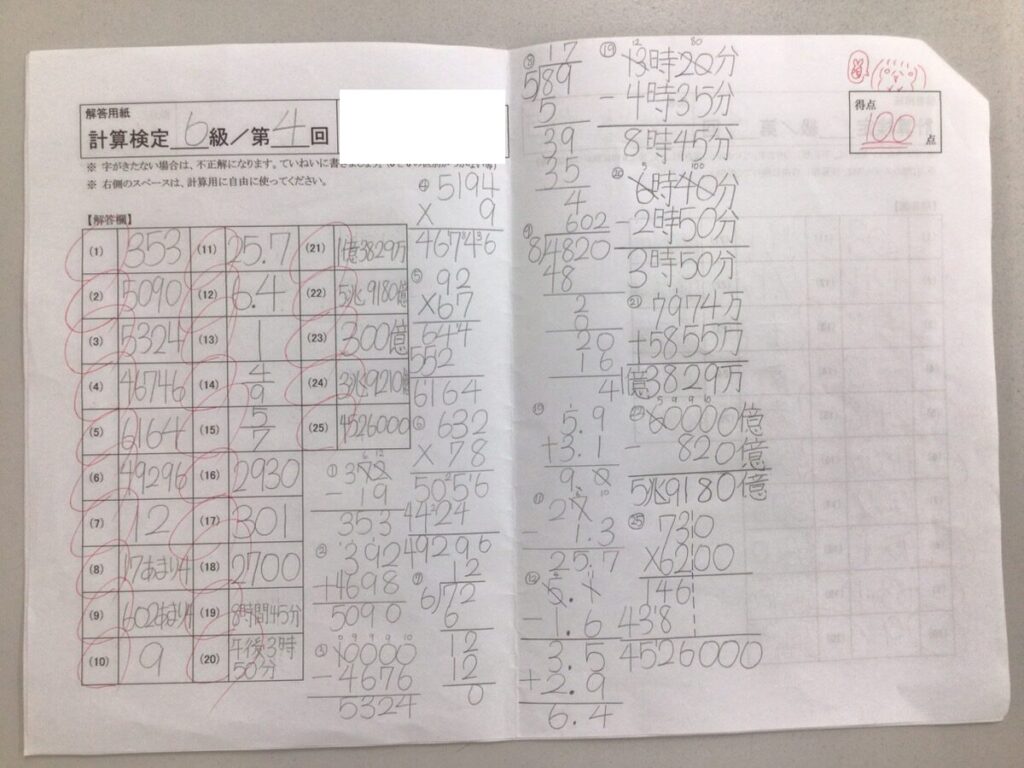 解答用紙
計算検定 6級/第4回
※ 字がきたない場合は、不正解になります。ていねいに書き
※ 右側のスペースは、計算用に自由に使ってください。
【解答欄】
(1) 353 (11) 25.7 (21) 1億3829万
(2) 5090 (12) 6.4 (22) 5兆9180億
(3) 5324 (13) 1 (23) 300億
(4) 46746 (14) 4/9 (24) 3兆9210億
(5) 6164 (15) 5/7 (25) 4526000
(6) 49296 (16) 2930
(7) 12 (17) 301
(8) 17あまり4 (18) 2700
(9) 602あまり4 (19) 8時間45分
(10) 9 (20) 午後3時50分
① 372
- 19
353
② 392
+4698
5090
③ 10000
- 4676
5324
④ 5194
× 9
46746
⑤ 92
×67
644
552
6164
⑥ 632
× 78
5056
4424
49296
⑦ 12
6)72
6
12
12
0
⑧ 17
5)89
5
39
35
4
⑨ 602
8)4820
48
2
0
20
16
4
⑩ 5.9
+3.1
9.0
⑪ 27
- 1.3
25.7
⑫ 5.1
- 1.6
3.5
+ 2.9
6.4
⑲ 13時20分
- 4時35分
8時45分
⑳ 6時40分
-2時50分
3時50分
㉑ 7974万
+5855万
1億3829万
㉒ 60000億
- 820億
5兆9180億
㉕ 730
×6200
146
438
4526000
得点
100点